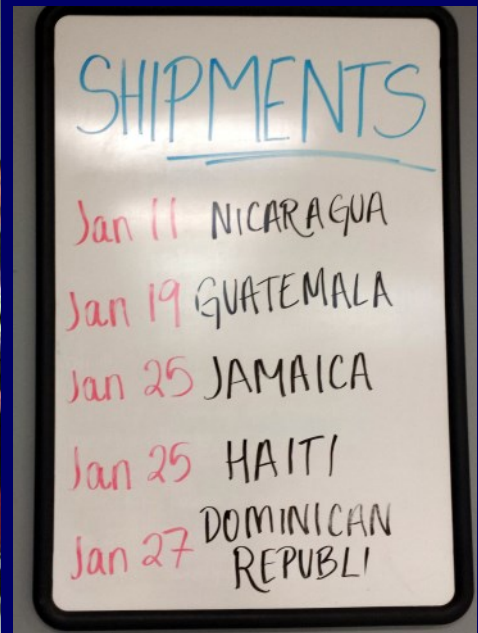 SHIPMENTS
Jan 11 NICARAGUA
Jan 19 GUATEMALA
Jan 25 JAMAICA
Jan 25 HAITI
Jan 27 DOMINICAN
REPUBLI